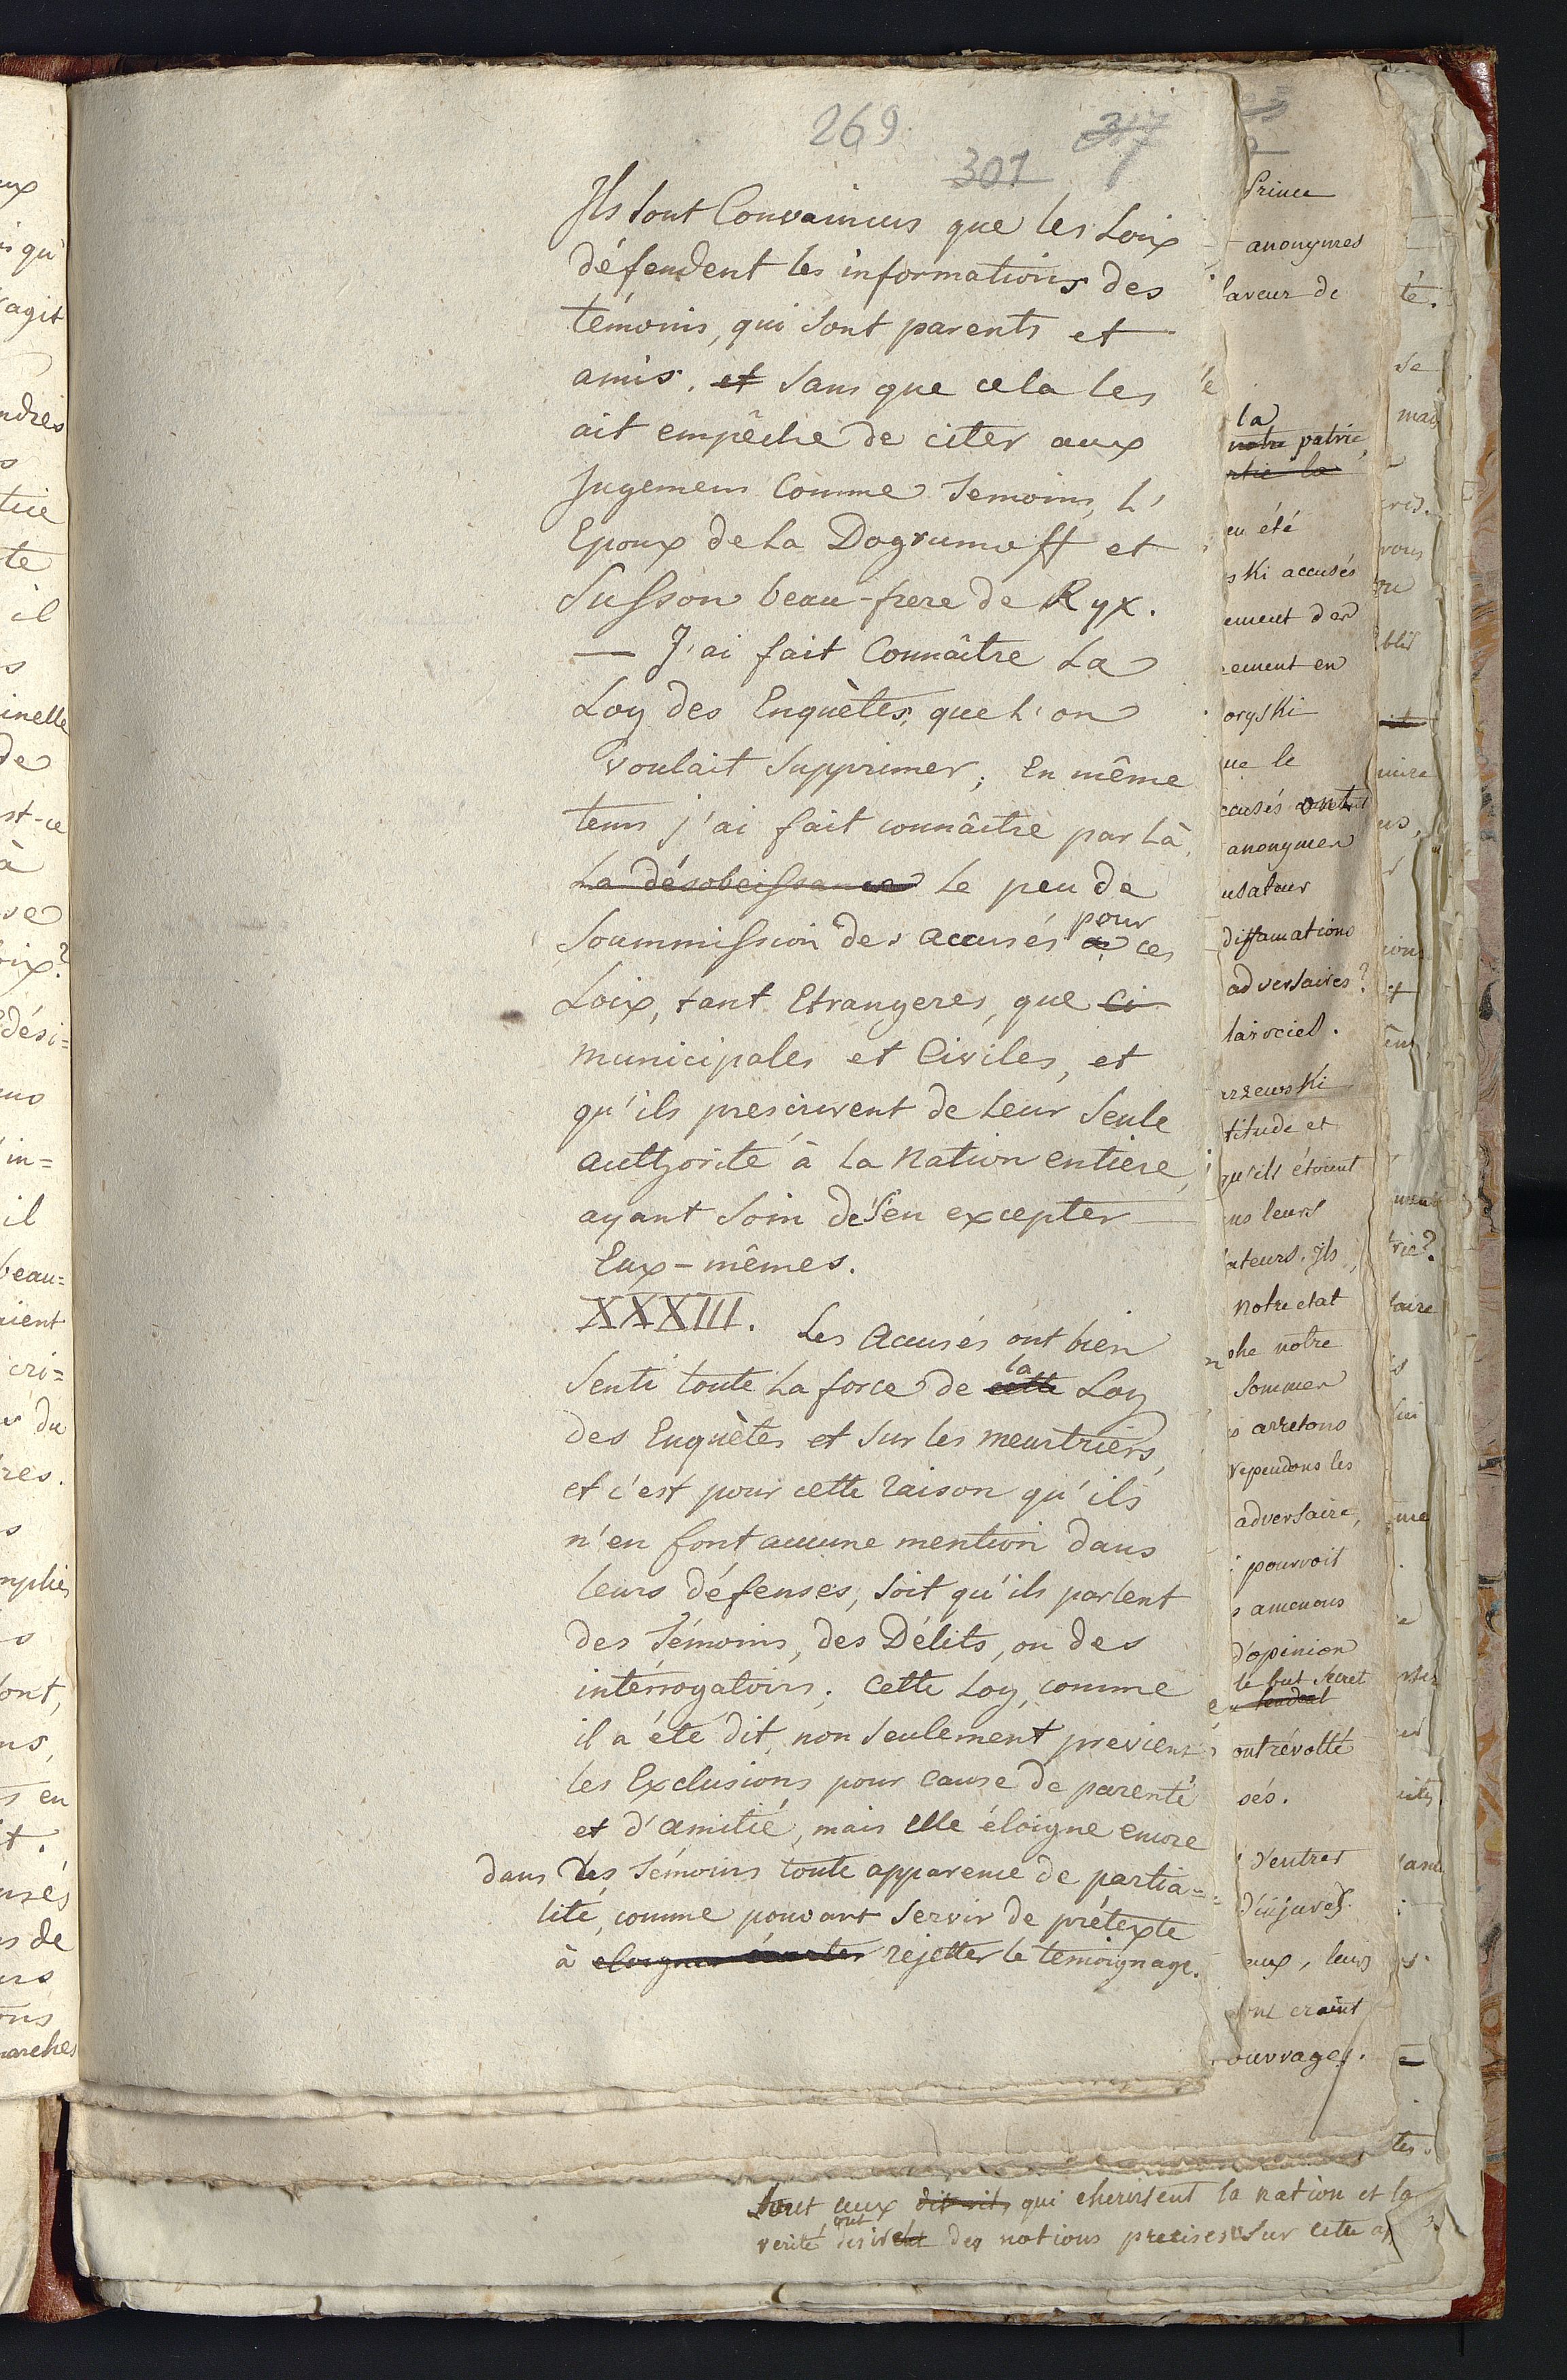 269
301
317
Ils sont Convaincus que les Loix
défendent les informations des
témoins, qui sont parents et
amis. et sans que cela les
ait empêche de citer aux
Jugemens Comme Temoins, L'
Epoux de la Dogrumoff et
Susson beau-frere de Ryx.
— J'ai fait Connaître La
Loy des Enquètes, que l'on
voulait Supprimer; En même
tems j'ai fait connaître par là,
La désobeissance le peu de
pour
Soummission des accusés à ces
Loix, tant Etrangeres, que ci
municipales et Civiles, et
qu'ils prescrivent de leur Seule
authorité à la Nation entiere,
ayant Soin de s'en excepter
Eux-mêmes.
XXXIII. Les Accusés ont bien
la
Senti toute la force de cette Loy
des Enquètes et Sur les meurtriers,
et c'est pour cette raison qu'ils
n'en font aucune mention dans
leurs défenses, Soit qu'ils parlent
des Témoins, des Délits, ou des
interrogatoirs. Cette Loy, comme
il a été dit, non Seulement previent
les Exclusions pour Cause de parenté
et d'amitié, mais elle éloigne encore
dans les Témoins toute apparence de partia=
lité, comme pouvant Servir de prétexte
à eloigner écarter rejetter le temoignage.
Prince
anonymes
faveur de
la
notre patrie,
rtie la
eu été
ski accusés
ement des
cement en
oryski
ue le
ccusés ont
anonymes
usateur
diffamations
adversaires?
rzewski
titude et
qu'ils étoient
ns leurs
ateurs. Ils
notre etat
che notre
Sommes
s arretons
rependons les
adversaire,
pourroit
s amenons
d'opinion
le but secret
ont révolté
sés.
d'entrer
d'injures.
eux, leurs
ont craint
ouvrages.
ceux qui cherissent la nation et la
ont
verité des notions precises Sur cette